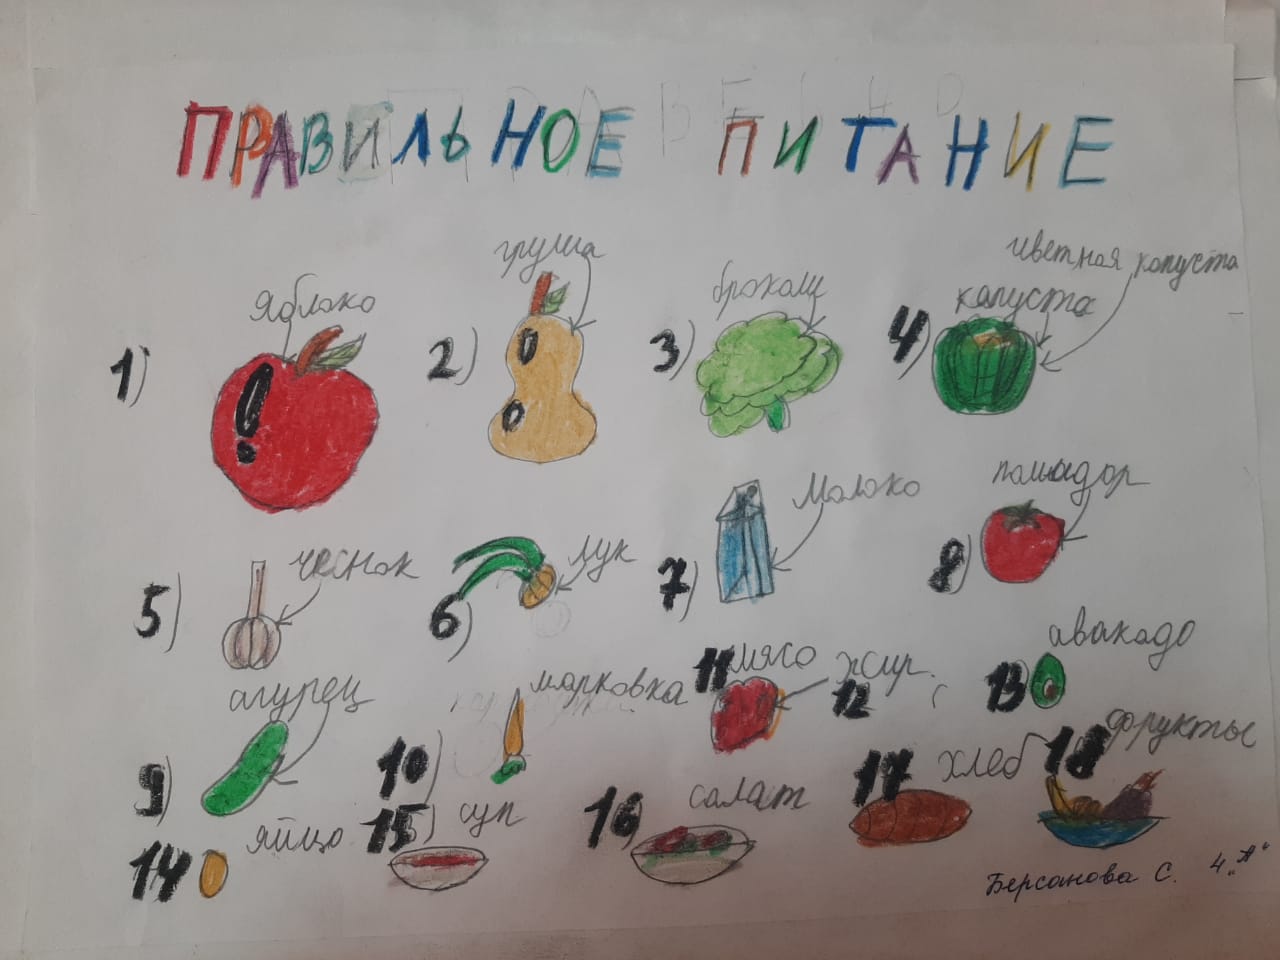 ПРАВИЛЬНОЕ ПИТАНИЕ
1) яблоко
2) груша
3) брокали
4) капуста цветная капуста
5) чеснок
6) лук
7) Молоко
8) помидор
9) агурец
10) марковка
11 мясо
12 жир
13) авакадо
14 яйцо
15) суп
16) салат
17 хлеб
18 фрукты
Берсанова С. 4 „А"